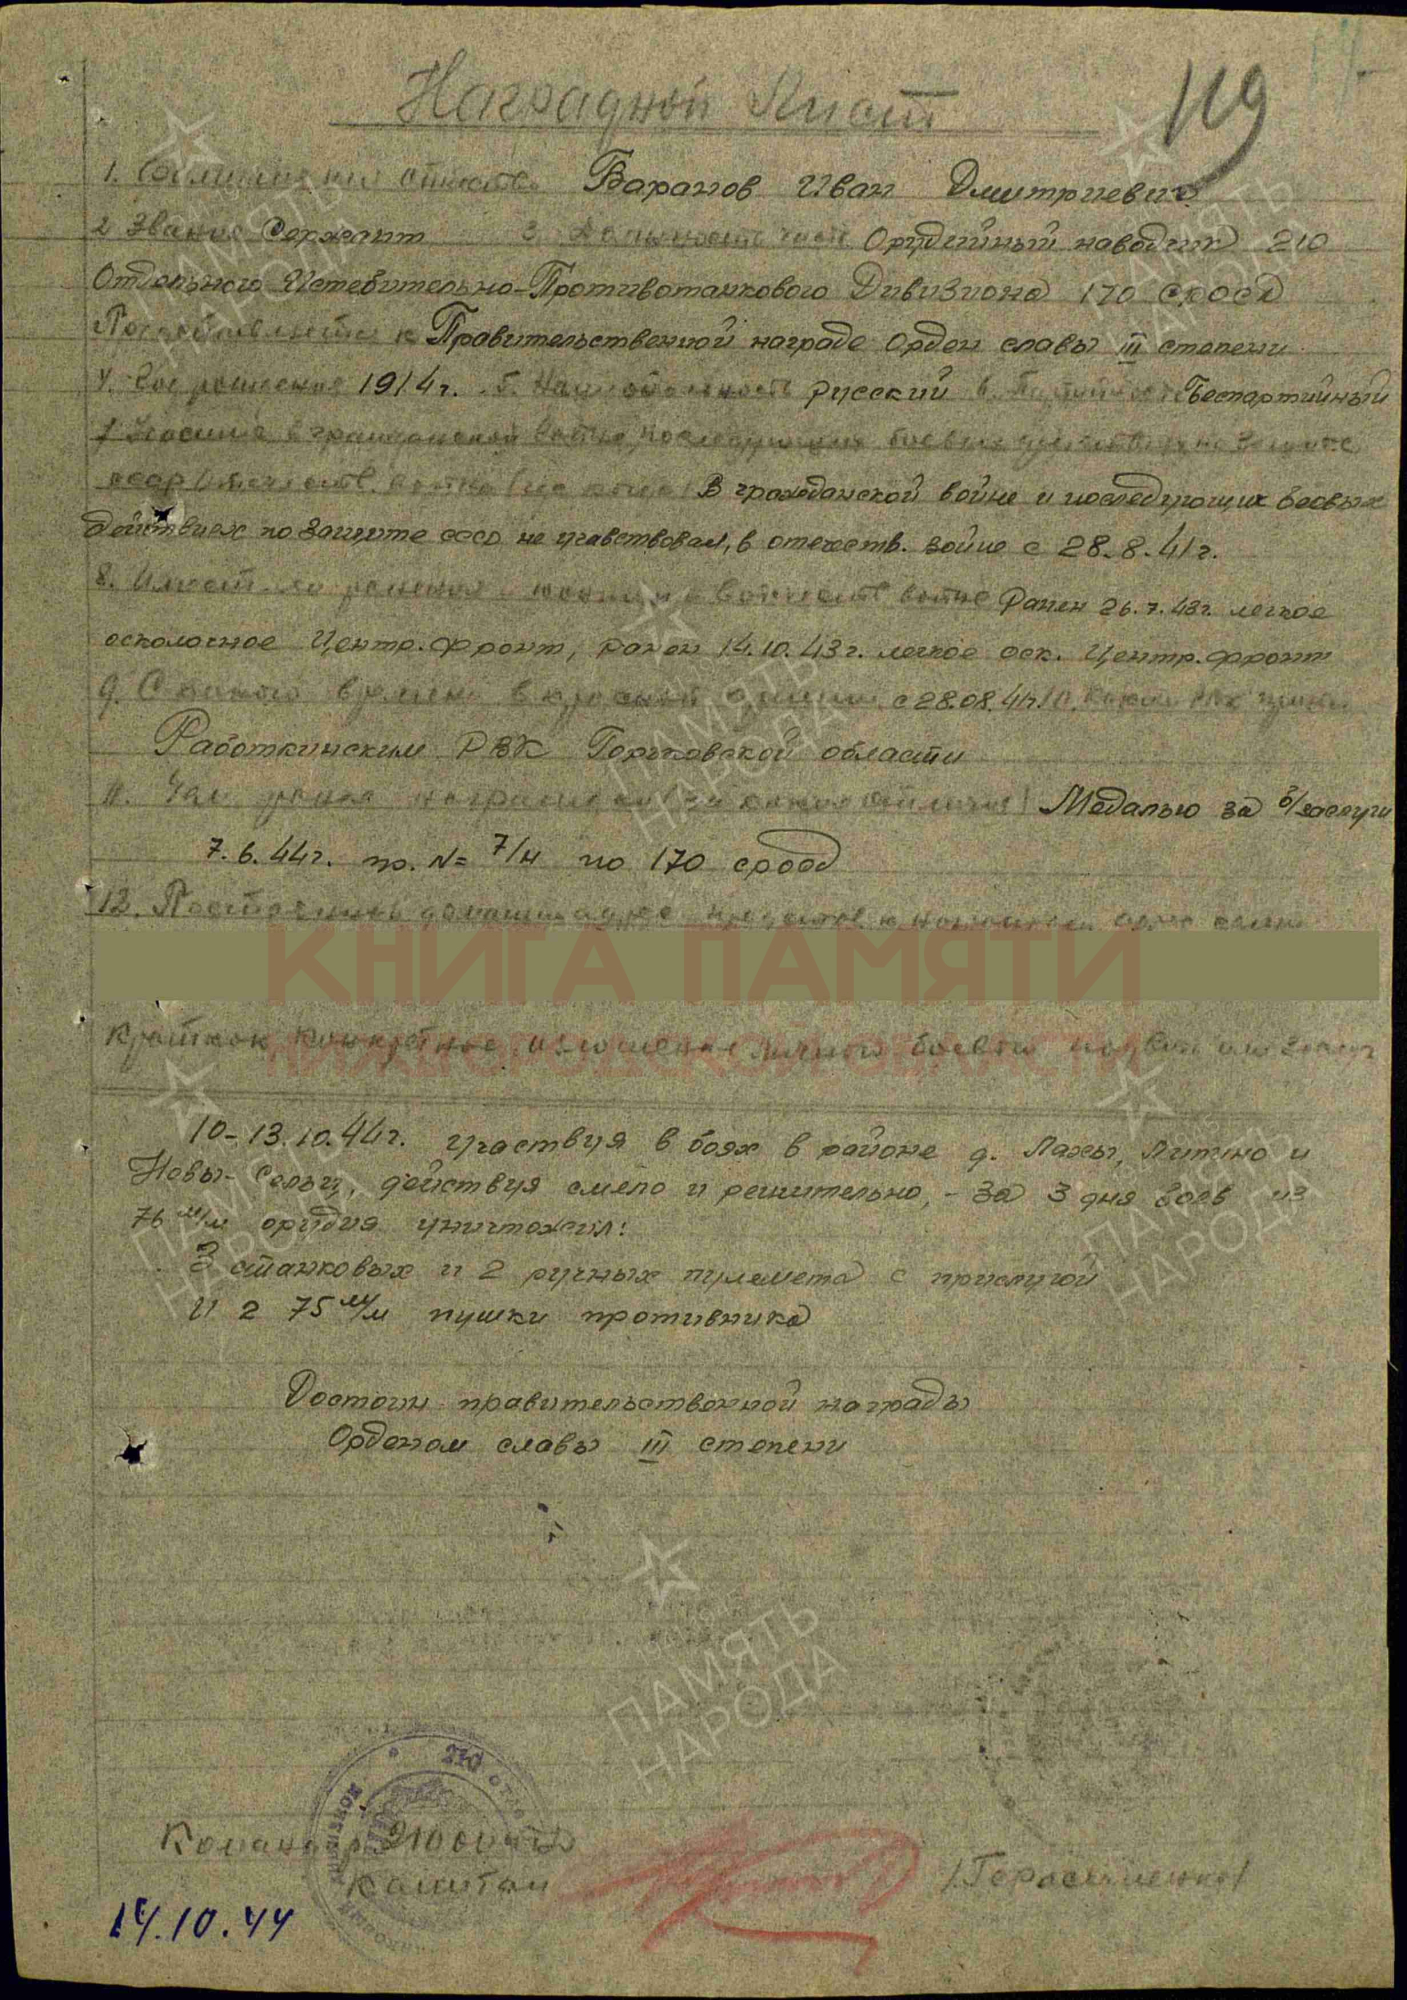 119
Наградной Лист
1. Фамилия имя отчество Баранов Иван Дмитриевич
2 Звание Сержант 3. Должность часть Орудийный наводчик 210
Отдельного Истебительно-Противотанкового Дивизиона 170 СРОСД
Представляется к Правительственной награде Орден славы III степени
4. Год рождения 1914 г. 5. Национальность русский 6. Партийность Беспартийный
7. Участие в гражданской войне последующих боевых действиях по защите
СССР и отечеств. войне В гражданской войне и последующих боевых
действиях по защите СССР не учавствовал, в отечеств. войне с 28.8.41г.
8. Имеет ли ранения в отечеств войне Ранен 26.7.43г. легкое
осколочное Центр.фронт, ранен 14.10.43г. легкое оск. Центр.фронт
9. С какого времени в красной армии с 28.08.41г. 10. Каким РВК призван
Работкинским РВК Горьковской области
11. Чем ранее награжден (за какие отличия) Медалью за б/заслуги
7.6.44г. пр. № 7/н по 170 сроссд
12. Постоянный домашний адрес
КНИГА ПАМЯТИ
НИЖЕГОРОДСКОЙ ОБЛАСТИ
Краткое конкретное изложение личного боевого подвига или заслуг
10-13.10.44г. участвуя в боях в районе д. Лахы, Литино и
Новы-Сельц, действуя смело и решительно, - за 3 дня боев из
76 м/м орудия уничтожил:
3 станковых и 2 ручных пулемета с прислугой
И 2 75 м/м пушки противника
Достоин правительственной награды
Орденом славы III степени
210
Командир 210
Капитан /Герасименко/
14.10.44
ПАМЯТЬ
НАРОДА